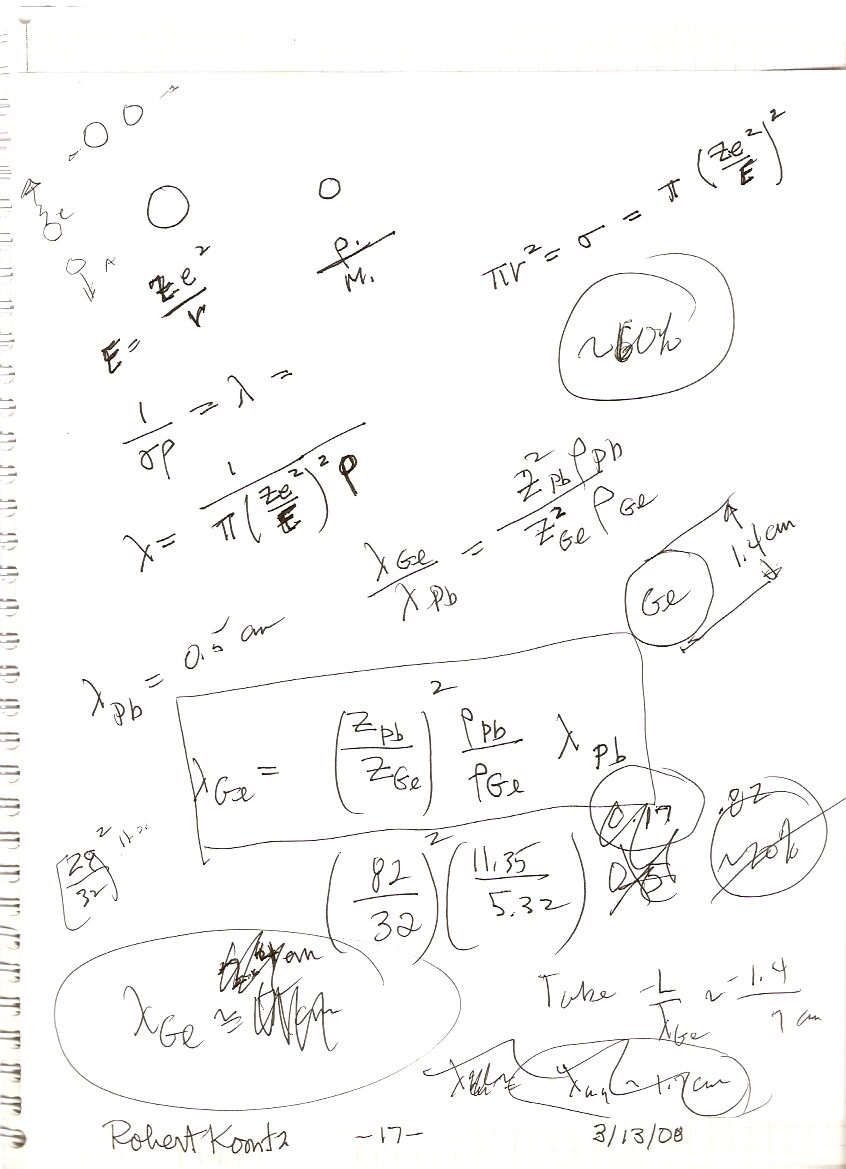 πr² = σ = π (Ze²/E)²
E = Ze²/r
ρ. / M.
~60%
1/σρ = λ =
λ = 1 / π(Ze²/E)² ρ
λGe/λPb = Z²Pb ρPb / Z²Ge ρGe
Ge 1.4 cm
λPb = 0.5 cm
λGe = (ZPb/ZGe)² ρPb/ρGe λPb
0.17
.82
~20%
(28/32)²
(82/32)² (11.35/5.32)
λGe ≈
cm
Take -L/λGe ~ -1.4/7 cm
Robert Koontz -17- 3/13/08